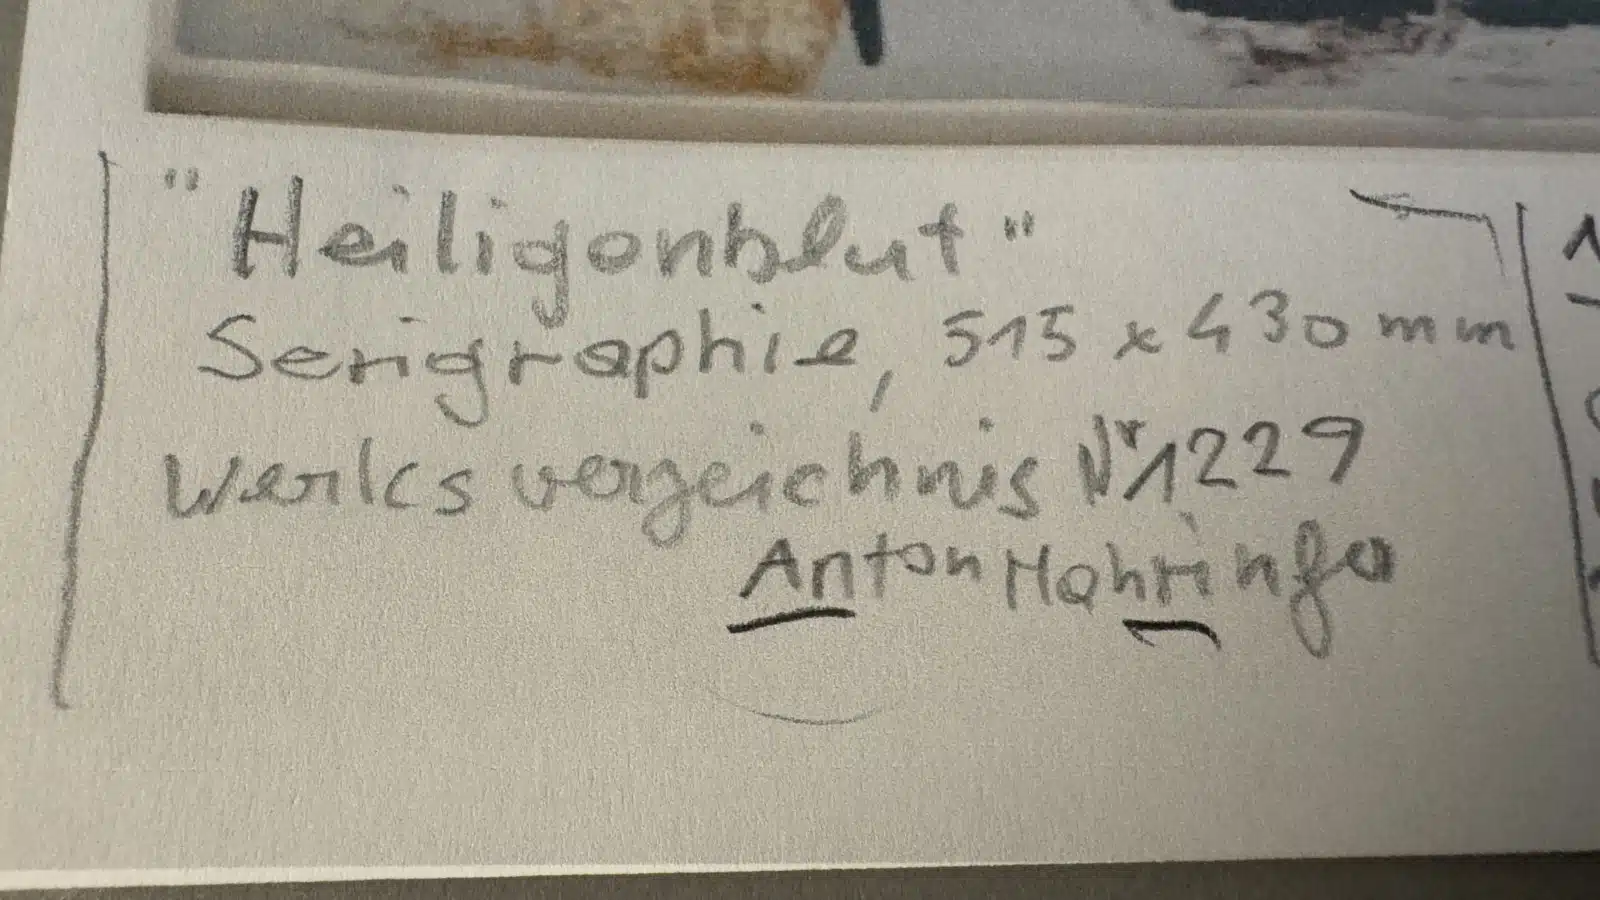 "Heiligenblut"
Serigraphie, 515 x 430 mm
Werksverzeichnis Nr 1229
Anton Mahringer